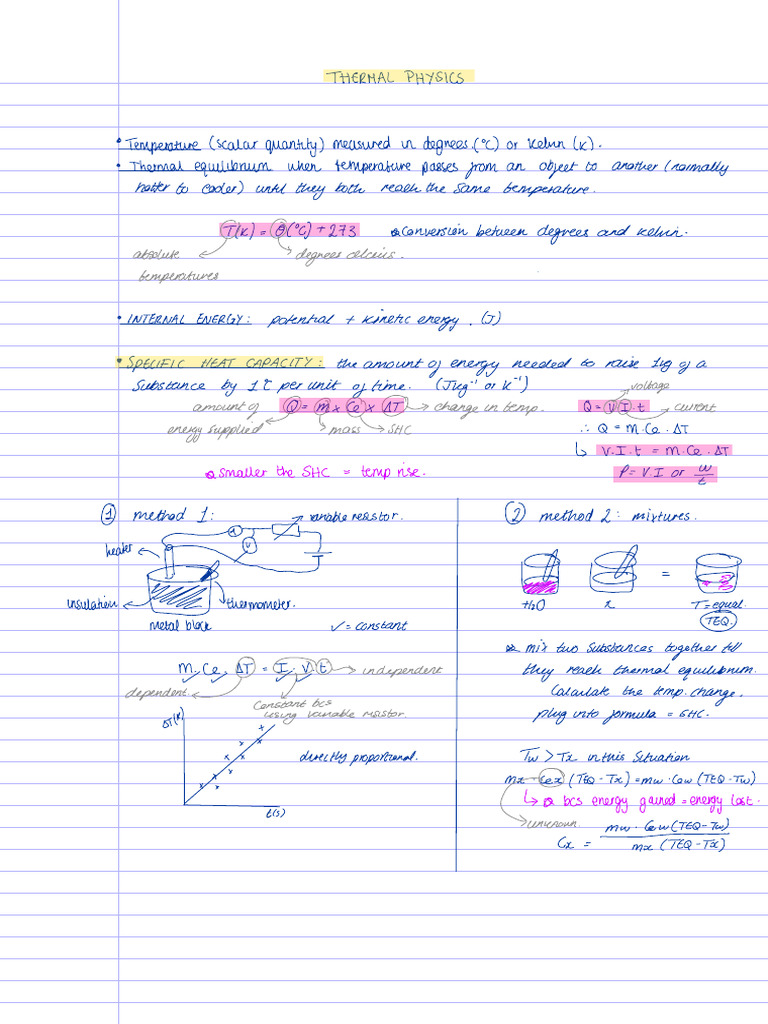 THERMAL PHYSICS
• Temperature (scalar quantity) measured in degrees (°C) or Kelvin (K).
• Thermal equilibrium when temperature passes from an object to another (normally
hotter to cooler) until they both reach the same temperature.
T(K) = θ(°C) + 273 conversion between degrees and Kelvin.
absolute temperatures
degrees celcius.
• INTERNAL ENERGY: potential + kinetic energy. (J)
• SPECIFIC HEAT CAPACITY: the amount of energy needed to raise 1kg of a
substance by 1°C per unit of time. (Jkg⁻¹ or K⁻¹)
amount of energy supplied
Q = m x Ce x ΔT
change in temp.
mass
SHC
smaller the SHC = temp rise.
voltage
Q = V.I.t
current
∴ Q = M.Ce.ΔT
↳ V.I.t = M.Ce.ΔT
P = V.I or w/t
① method 1:
variable resistor.
A
V
heater
insulation
thermometer.
metal block
✓ = constant
M.Ce.ΔT = I.V.t
independent
dependent.
Constant bcs
using variable risistor.
ΔT(K)
directly proportional.
t(s)
② method 2: mixtures.
=
H₂O
x
T = equal
TEQ.
mix two substances together till
they reach thermal equilibrium.
Calculate the temp. change,
plug into formula = SHC.
Tw > Tx in this situation
mx · Cex (TEQ - Tx) = mw · Cew (TEQ - Tw)
↳ bcs energy gained = energy lost.
unknown.
Cx = mw · Cew (TEQ - Tw) / mx (TEQ - Tx)